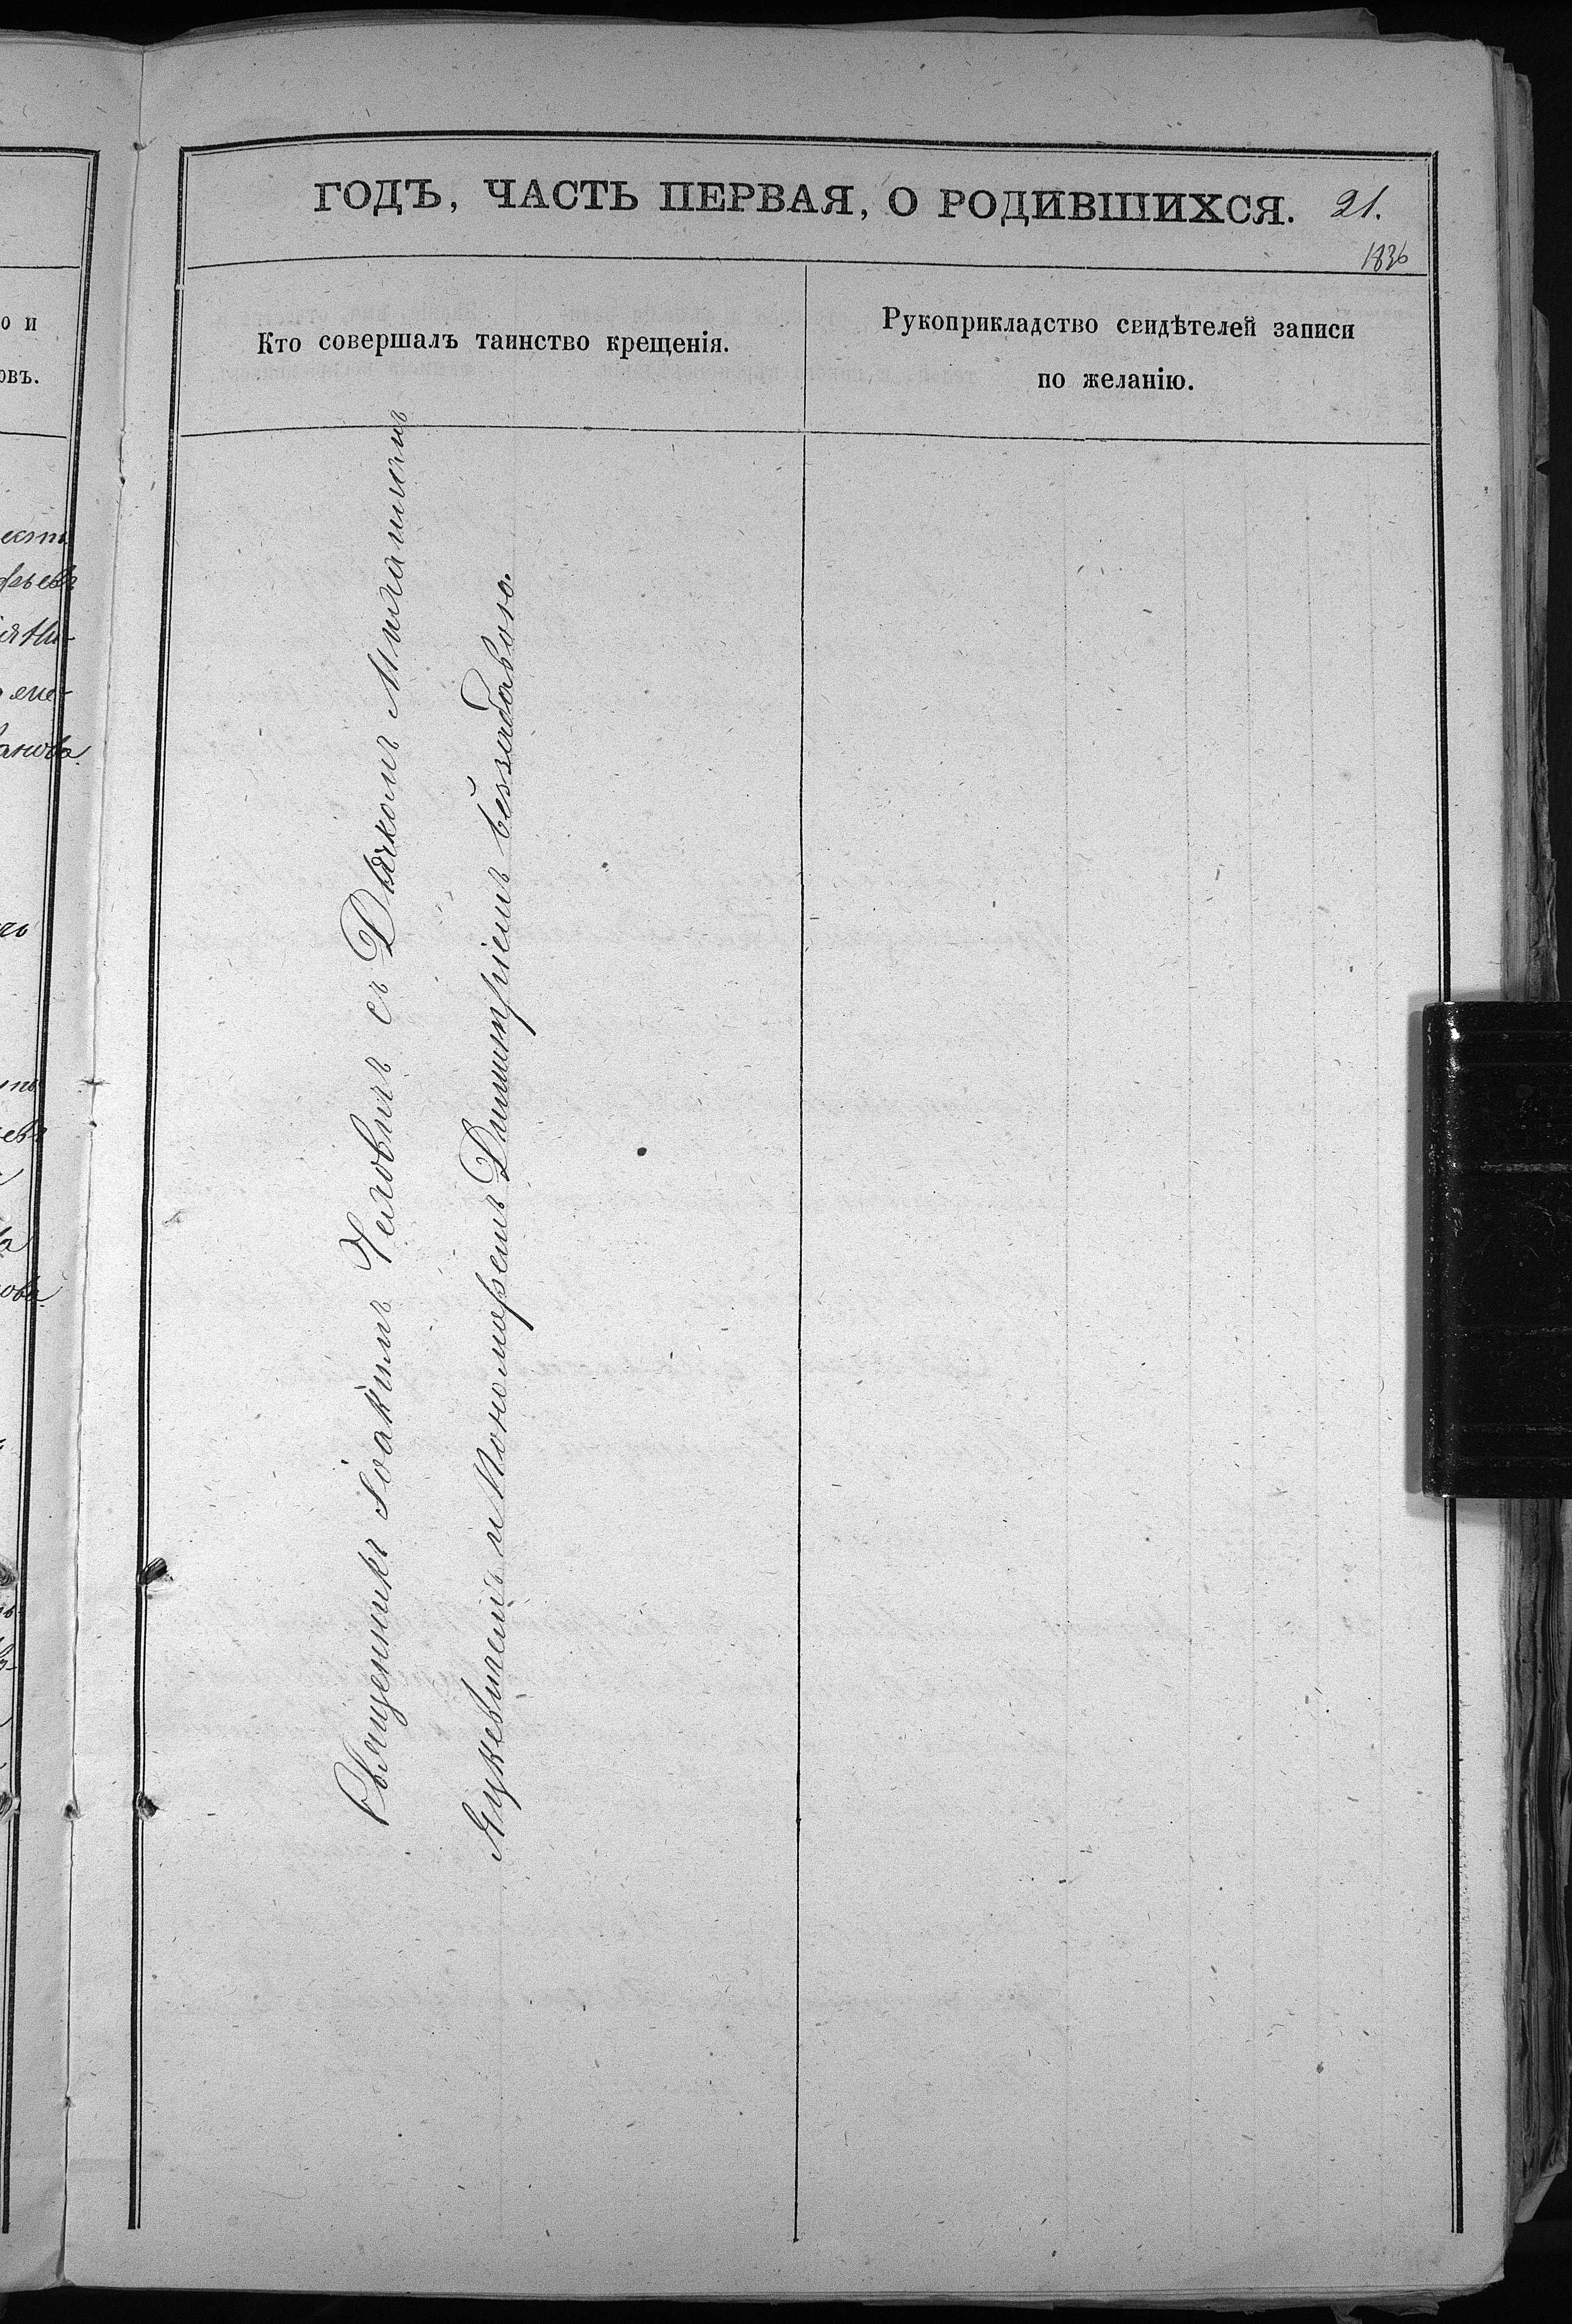 ГОДЪ, ЧАСТЬ ПЕРВАЯ, О РОДИВШИХСЯ. 21.
1836
о и
овъ.
Кто совершалъ таинство крещенія.
Рукоприкладство свидѣтелей записи
по желанію.
Священникъ Іоакимъ Чиловичъ съ Дьячкомъ Михаиломъ
Яцкевичемъ и Пономаремъ Димитріемъ